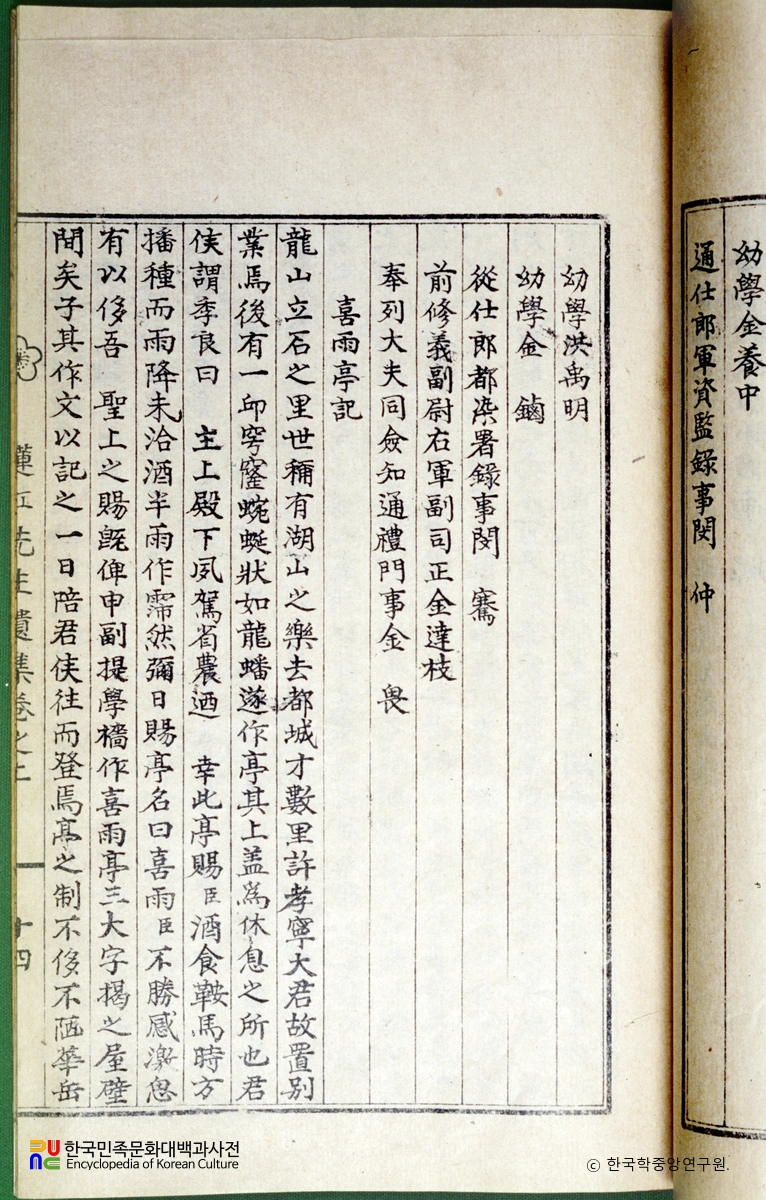 幼學金養中
通仕郎軍資監錄事閔 仲
幼學洪禹明
幼學金 鏀
從仕郎都染署錄事閔 騫
前修義副尉右軍副司正金達枝
奉列大夫同僉知通禮門事金 畏
喜雨亭記
龍山立石之里世稱有湖山之樂去都城才數里許孝寧大君故置別
業焉後有一丘穹窿蜿蜒狀如龍蟠遂作亭其上盖爲休息之所也君
侯謂季良曰 主上殿下夙駕省農迺 幸此亭賜臣酒食鞍馬時方
播種而雨降未洽酒半雨作霈然彌日賜亭名曰喜雨臣不勝感激思
有以侈吾 聖上之賜旣俾申副提學檣作喜雨亭三大字揭之屋壁
間矣子其作文以記之一日陪君侯往而登焉亭之制不侈不陋華岳
先生遺集卷之二
十四
한국민족문화대백과사전
Encyclopedia of Korean Culture
© 한국학중앙연구원.